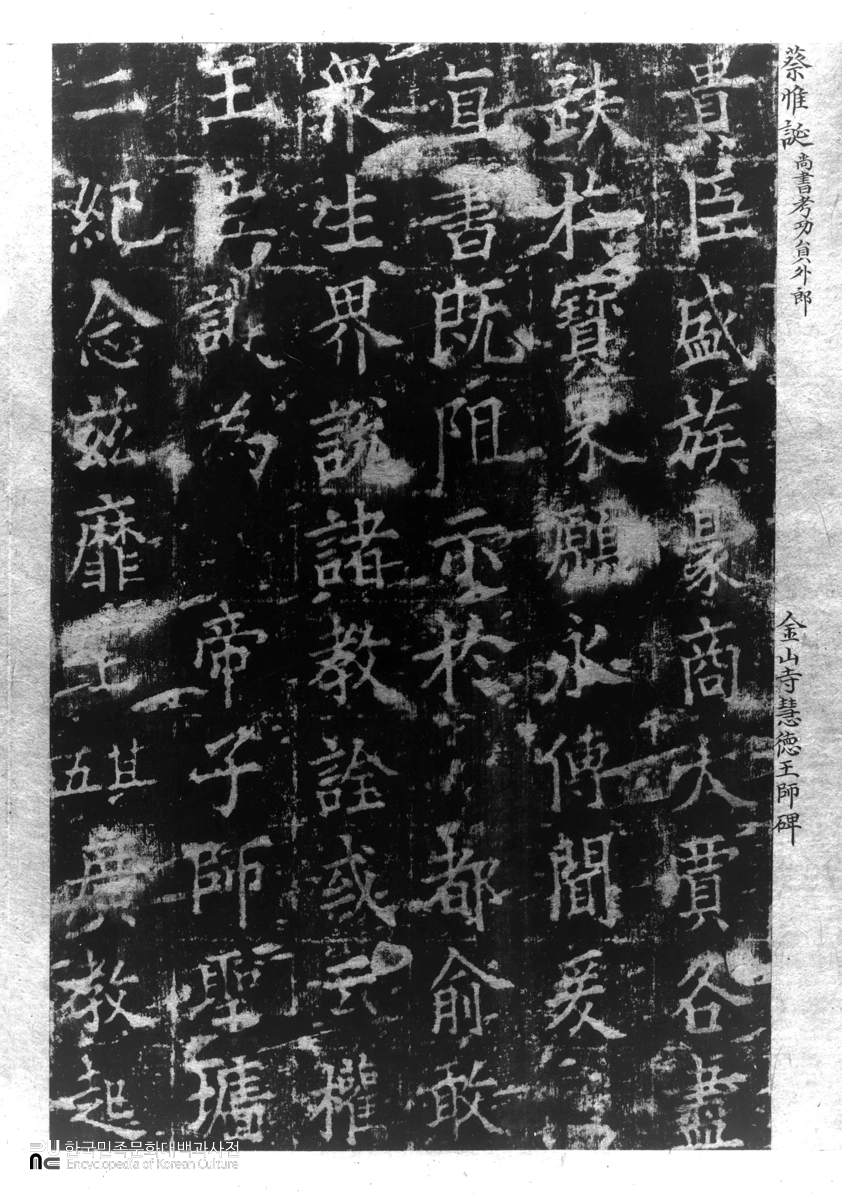 蔡惟誕 尚書考功員外郎 金山寺慧德王師碑
貴臣盛族豪商大賈各盡
於寶永傳聞爰
書既阻於都俞敢
衆生界說諸教詮或示權
王臣為帝子師聖墉
二紀念茲靡 其五 廣教起
한국민족문화대백과사전
Encyclopedia of Korean Culture